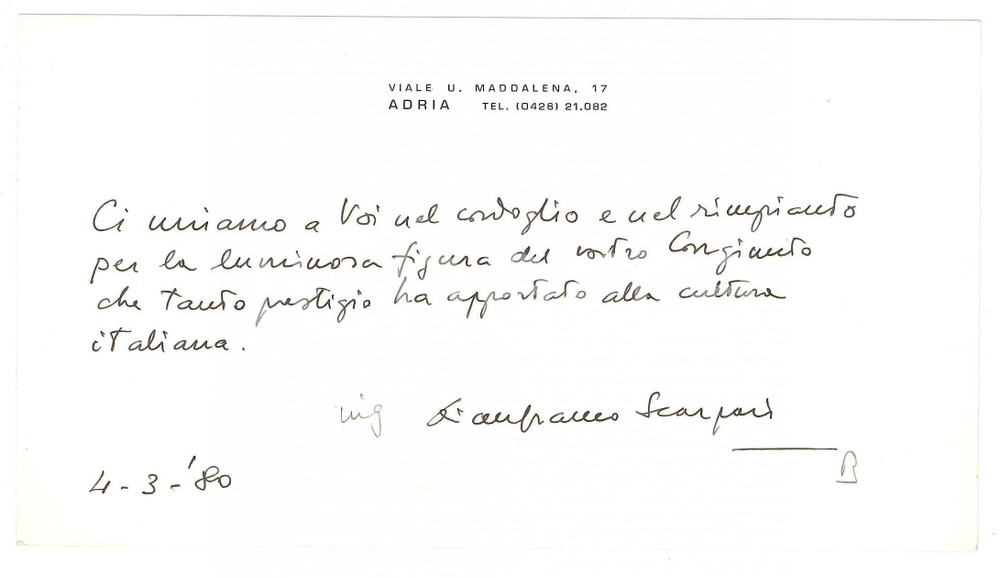 VIALE U. MADDALENA, 17
ADRIA TEL. (0426) 21.082
Ci uniamo a Voi nel cordoglio e nel rimpianto
per la luminosa figura del vostro Congiunto
che tanto prestigio ha apportato alla cultura
italiana.
ing Gianfranco Scarpari
B
4-3-'80